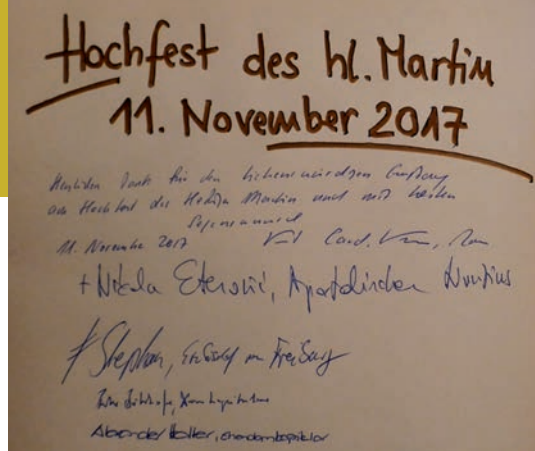 Hochfest des hl. Martin
11. November 2017
Herzlichen Dank für den liebenswürdigen Empfang
am Hochfest des Heiligen Martin und mit besten
Segenswünschen
11. November 2017 Card. Rom
+ Nikola Eterović, Apostolischer Nuntius
+ Stephan, Erzbischof von Freiburg
Domkapitular
Alexander Halter, Ehrendomkapitular